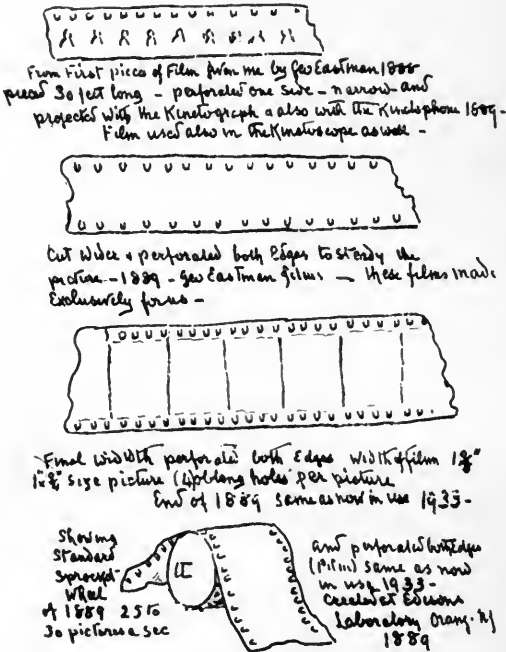 From First pieces of Film given me by Geo Eastman 1888
pieces 30 feet long - perforated one side - narrow - and
projected with the Kinetograph & also with the Kinetophone 1889 -
Film used also in the Kinetoscope as well -
Cut wider & perforated both Edges to steady the
picture - 1889 - Geo Eastman films - these films made
Exclusively for us -
Final width perforated both Edges width of film 1⅜"
size picture (4) oblong holes per picture
End of 1889 same as now in use 1933 -
Showing
Standard
Sprocket
Wheel
of 1889 25 to
30 pictures a sec
and perforated both edges
same as now
in use 1933 -
Created at Edisons
Laboratory Orange. NJ
1889